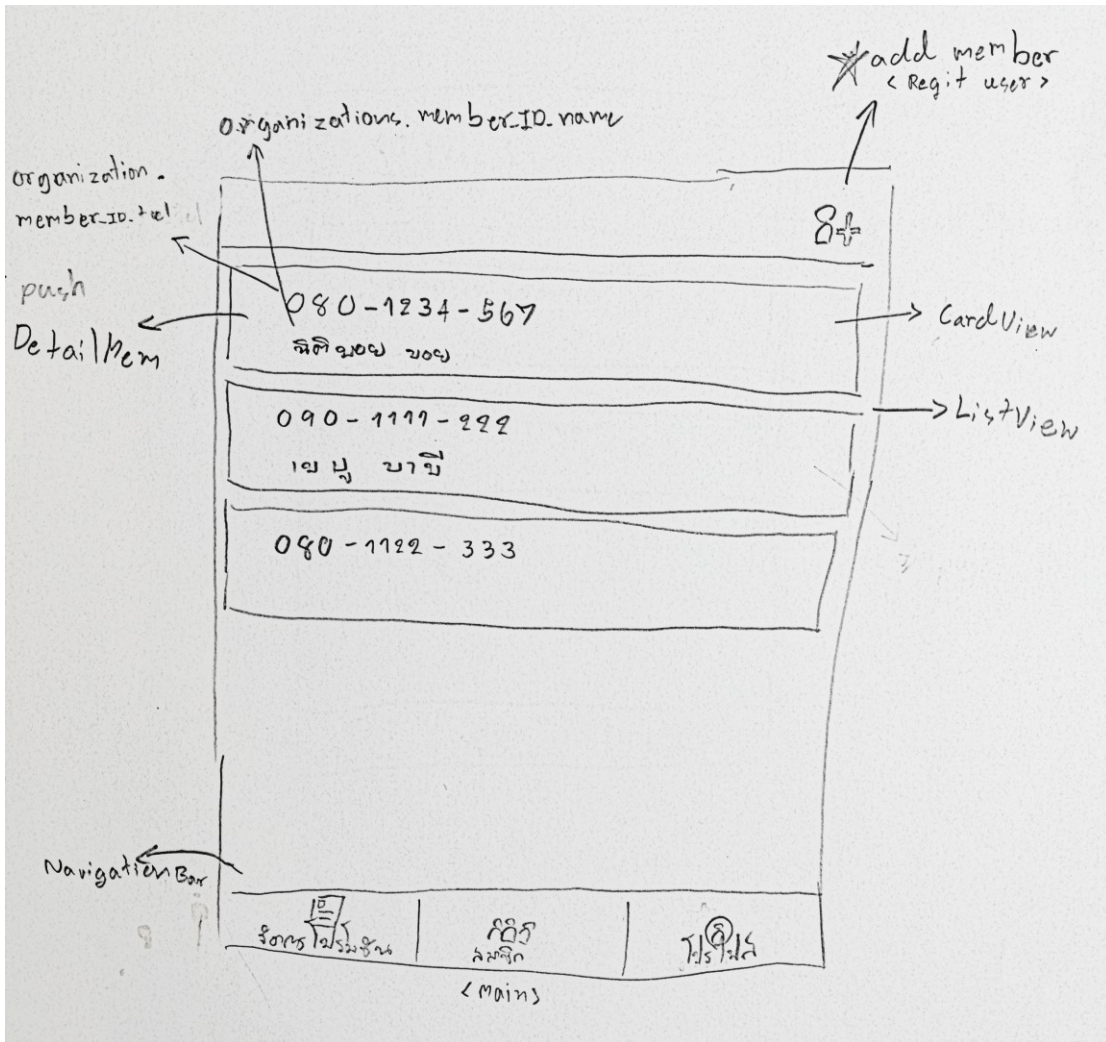 add member
< Regit user >
organizations. member_ID. name
organization.
member_ID. tel
push
DetailMem
080-1234-567
CardView
090-1111-222
ListView
เขปู บาบี
080-1122-333
NavigationBar
จัดการโปรโมชัน
สมาชิก
โปรไฟล์
<Main>